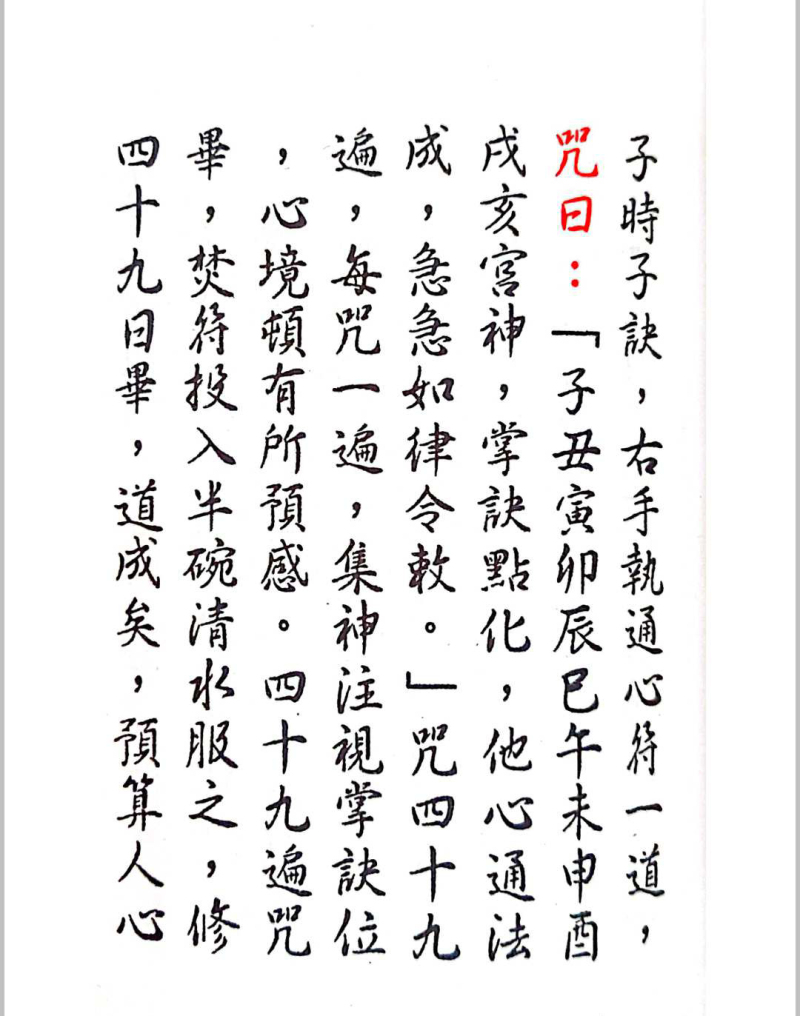 子時子訣，右手執通心符一道，
咒曰：「子丑寅卯辰巳午未申酉
戌亥宮神，掌訣點化，他心通法
成，急急如律令敕。」咒四十九
遍，每咒一遍，集神注視掌訣位
，心境頓有所預感。四十九遍咒
畢，焚符投入半碗清水服之，修
四十九日畢，道成矣，預算人心